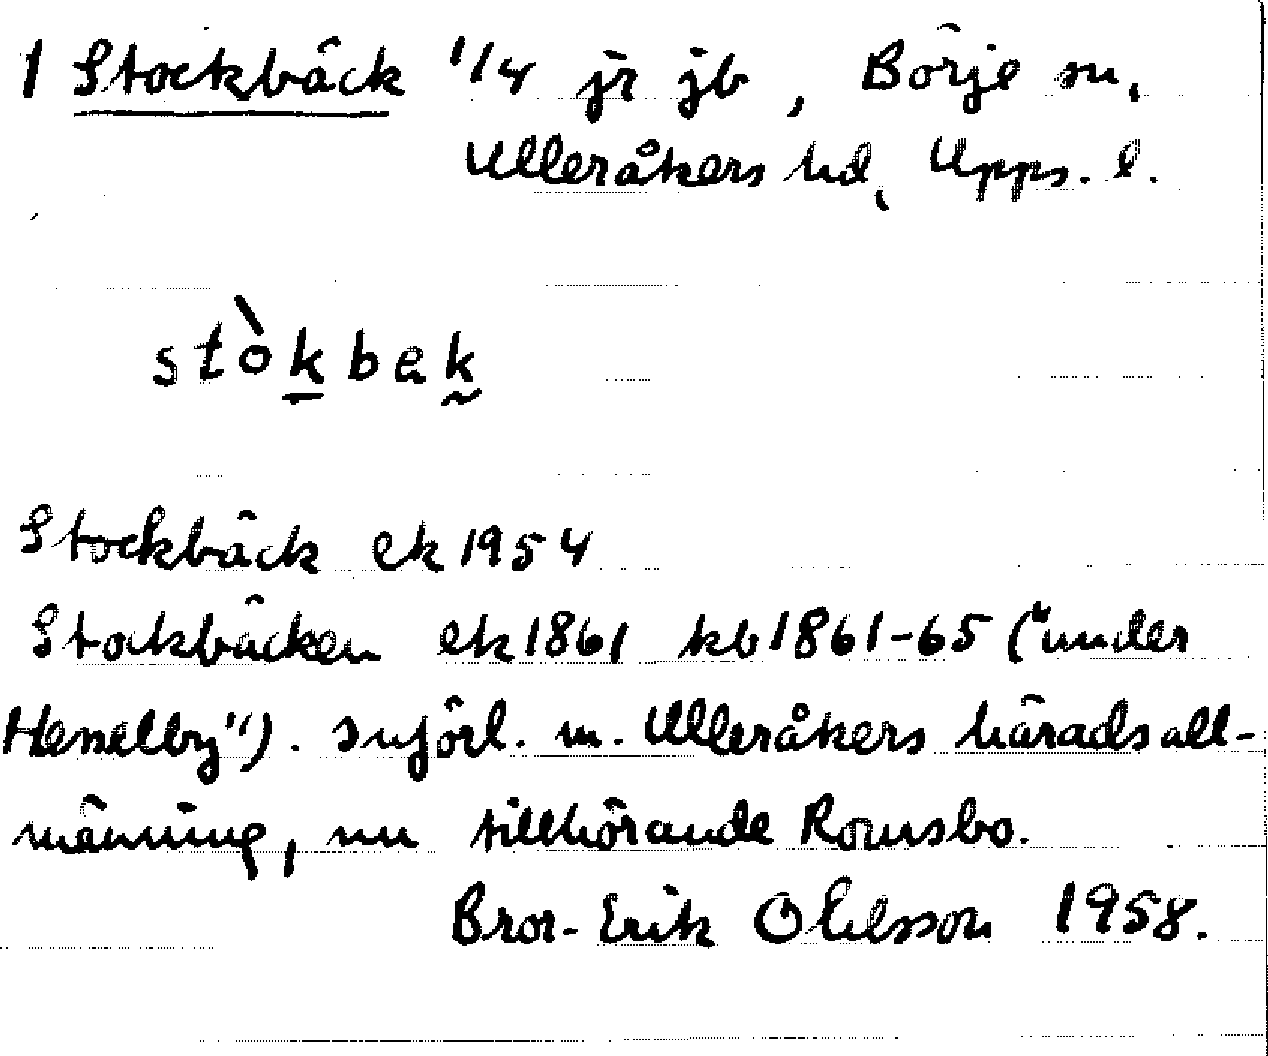 1 Stockbäck 1/4 jr jb, Börje sn,
Ulleråkers hd, Upps. l.
stòkbek
Stockbäck ek 1954
Stockbäcken ek 1861 kb 1861-65 ("under
Hesselby"). snförl. m. Ulleråkers häradsall-
männing, nu tillhörande Rornsbo.
Bror-Erik Ohlsson 1958.